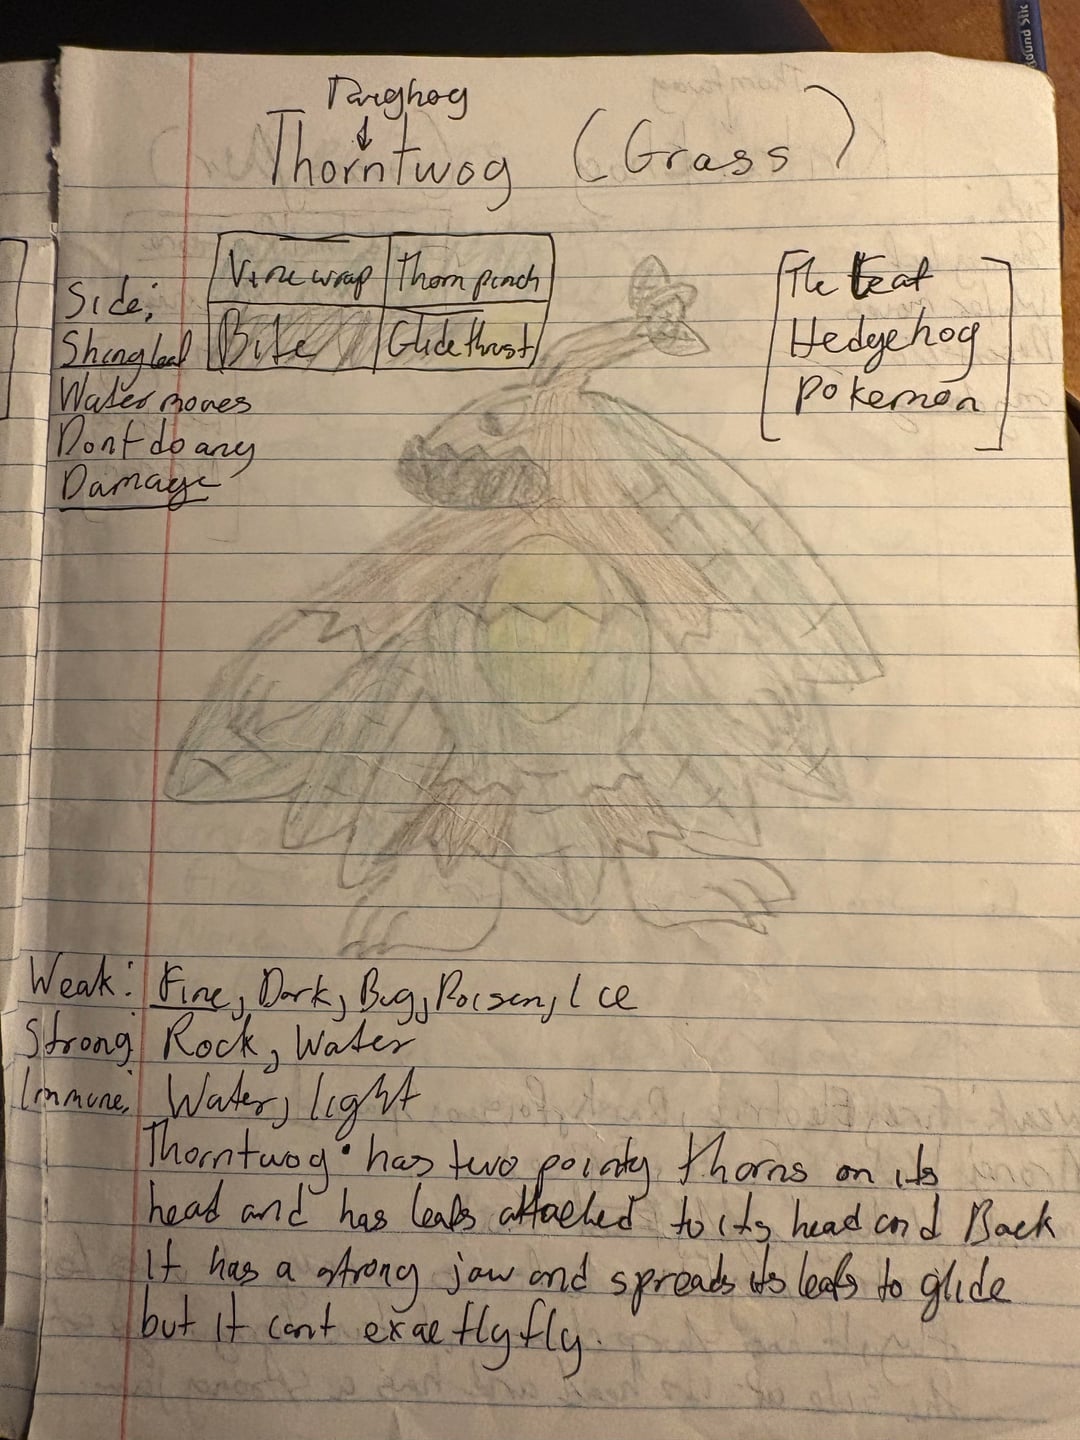 Thorntwog (Grass)
Vine wrap
Thorn pinch
Bite
Glide thrust
Side:
Water moves
Dont do any
Damage
The Leaf
Hedgehog
Pokemon
Weak: Fire, Dark, Bug, Poisen, Ice
Strong: Rock, Water
Immune: Water, light
Thorntwog has two pointy thorns on its
head and has leafs attached to its head and Back
It has a strong jaw and spreads its leafs to glide
but it cant exactly fly.
ound Stic